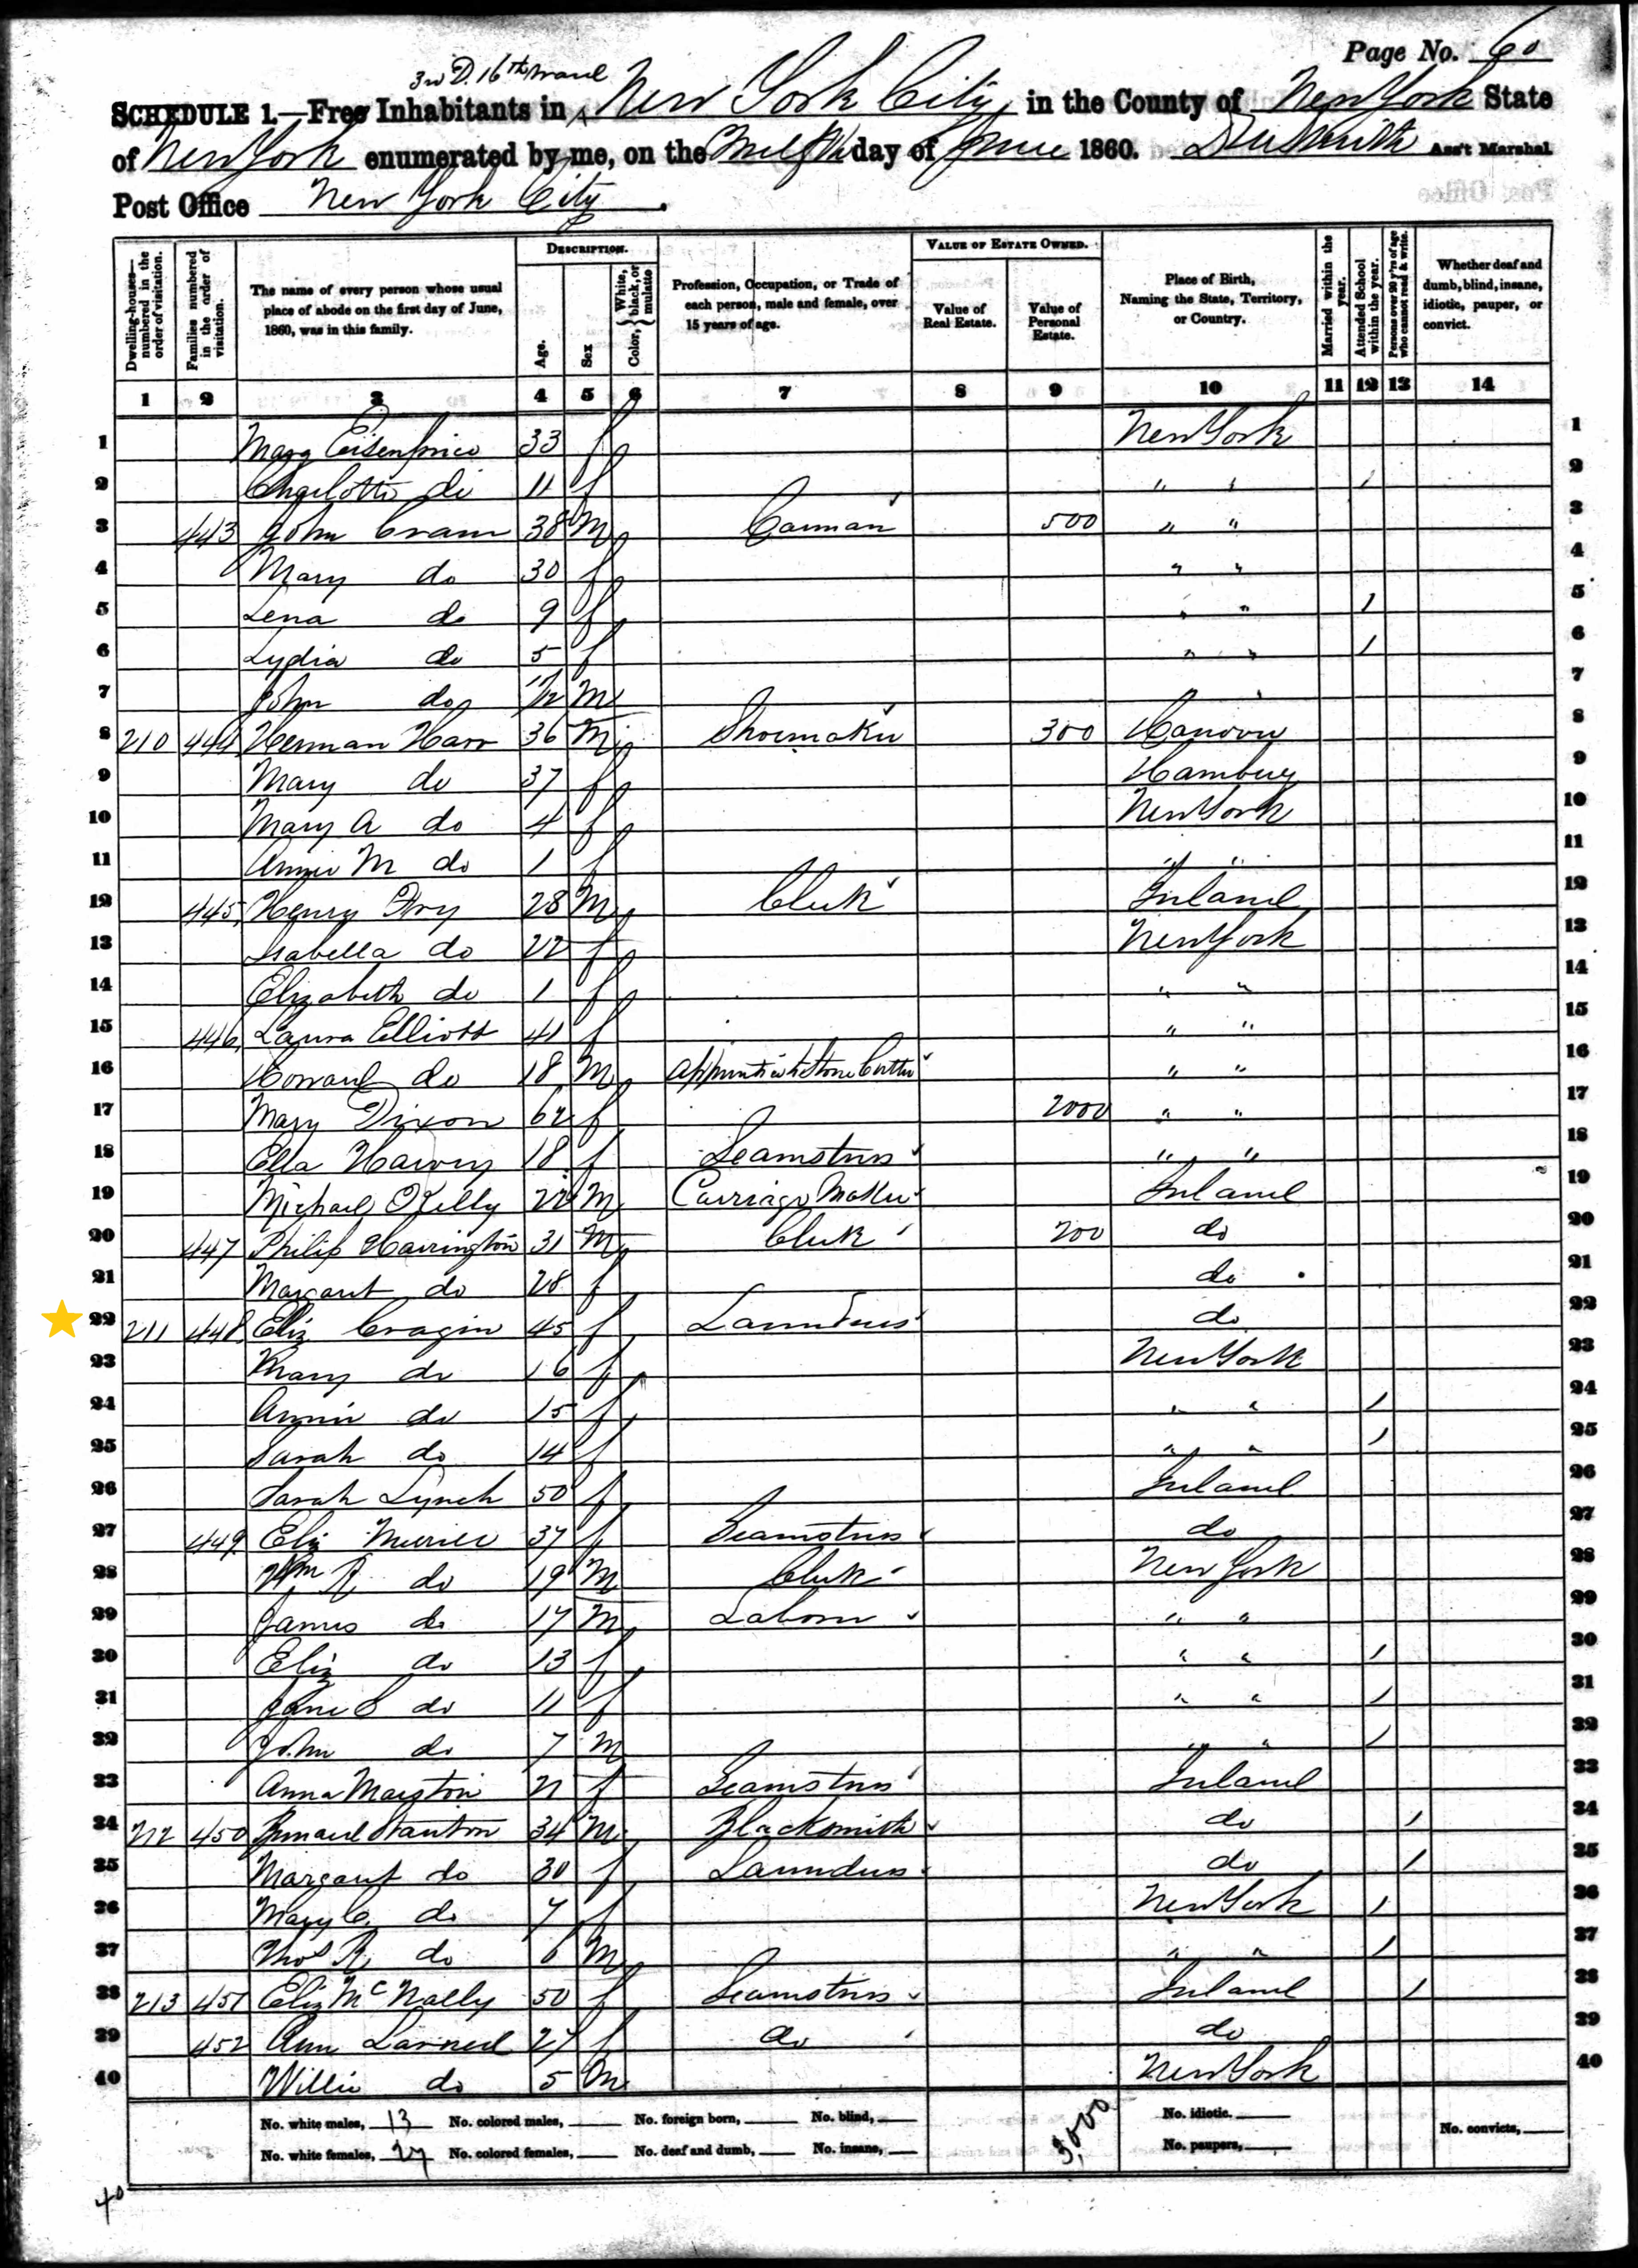 Page No. 60
3rd D. 16th Ward
SCHEDULE 1.—Free Inhabitants in New York City in the County of New York State
of New York enumerated by me, on the Twelfth day of June 1860. Ass't Marshal
Post Office New York City.
Dwelling-houses—numbered in the order of visitation.
Families numbered in the order of visitation.
The name of every person whose usual place of abode on the first day of June, 1860, was in this family.
DESCRIPTION.
Age.
Sex
Color, White, black, or mulatto
Profession, Occupation, or Trade of each person, male and female, over 15 years of age.
VALUE OF ESTATE OWNED.
Value of Real Estate.
Value of Personal Estate.
Place of Birth, Naming the State, Territory, or Country.
Married within the year.
Attended School within the year.
Persons over 20 y'rs of age who cannot read & write.
Whether deaf and dumb, blind, insane, idiotic, pauper, or convict.
1 2 3 4 5 6 7 8 9 10 11 12 13 14
1 Mary 33 f New York 1
2 Charlotte do 11 f " " / 2
3 443 John Cram 38 M Carman 500 " " 3
4 Mary do 30 f " " 4
5 Lena do 9 f " " / 5
6 Lydia do 5 f " " / 6
7 John do 11/12 M " " 7
8 210 444 Herman Harr 36 M Shoemaker 300 Hanover 8
9 Mary do 37 f Hamburg 9
10 Mary A do 4 f New York 10
11 Annie M do 1 f " " 11
12 445 Henry 28 M Clerk Ireland 12
13 Isabella do 22 f New York 13
14 Elizabeth do 1 f " " 14
15 446 Laura Elliott 41 f " " 15
16 Howard do 18 M apprentice to Stone Cutter " " 16
17 Mary Dixon 62 f 2000 " " 17
18 Ella Harvey 18 f Seamstress " " 18
19 Michael OKelly 22 M Carriage Maker Ireland 19
20 447 Philip Harrington 31 M Clerk 200 do 20
21 Margaret do 28 f do 21
22 211 448 Eliz Cragin 45 f Laundress do 22
23 Mary do 16 f New York 23
24 Annie do 15 f " " / 24
25 Sarah do 14 f " " / 25
26 Sarah Lynch 50 f Ireland 26
27 449 Eliz Merrill 37 f Seamstress do 27
28 Wm R do 19 M Clerk New York 28
29 James do 17 M Laborer " " 29
30 Eliz do 13 f " " / 30
31 Jane do 11 f " " / 31
32 John do 7 M " " / 32
33 Anna Marston 21 f Seamstress Ireland 33
34 212 450 Stanton 34 M Blacksmith do / 34
35 Margaret do 30 f Laundress do / 35
36 Mary C. do 7 f New York / 36
37 Thos R do 6 M " " / 37
38 213 451 Eliz McNally 50 f Seamstress Ireland / 38
39 452 Ann Larned 27 f do do 39
40 Willie do 5 M New York 40
No. white males, 13 No. colored males, No. foreign born, No. blind, No. idiotic.
No. white females, 27 No. colored females, No. deaf and dumb, No. insane, 3,000 No. paupers, No. convicts,
40